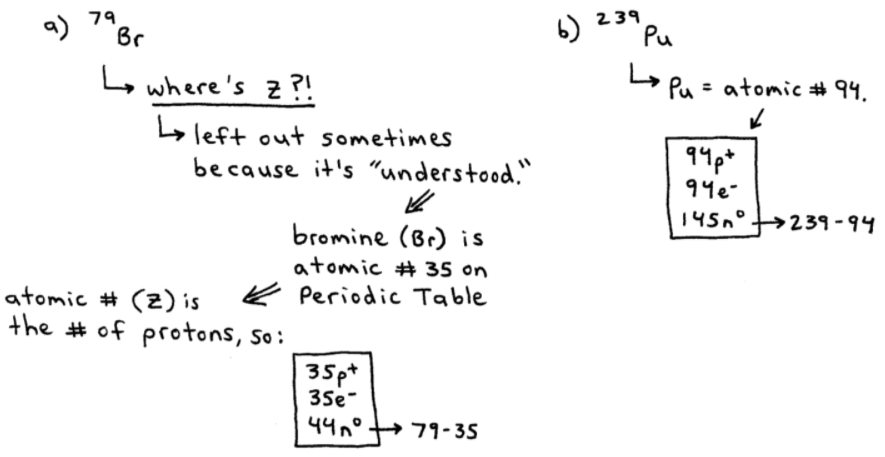 a) ⁷⁹Br
where's Z?!
left out sometimes
because it's "understood."
bromine (Br) is
atomic # 35 on
Periodic Table
atomic # (Z) is
the # of protons, so:
35p⁺
35e⁻
44n⁰ → 79-35
b) ²³⁹Pu
Pu = atomic # 94.
94p⁺
94e⁻
145n⁰ → 239-94